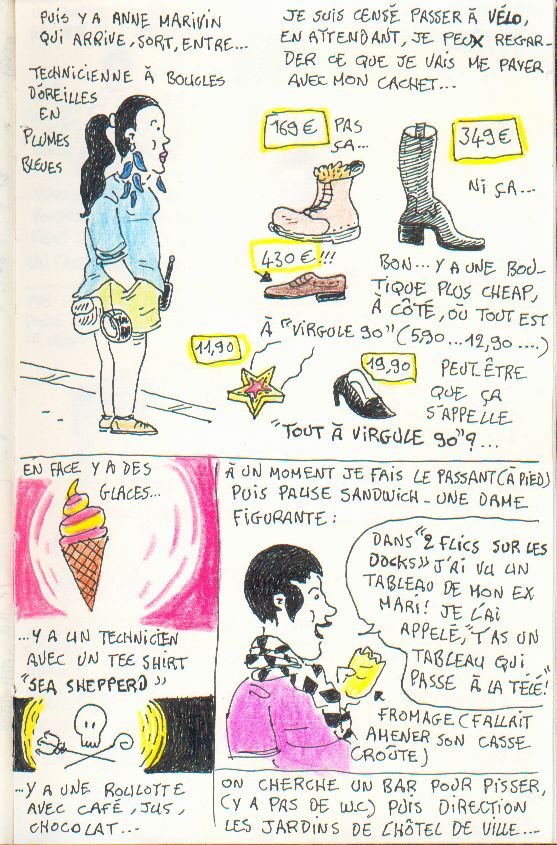 PUIS Y A ANNE MARIVIN
QUI ARRIVE, SORT, ENTRE...
TECHNICIENNE À BOUCLES
D'OREILLES
EN
PLUMES
BLEUES
JE SUIS CENSÉ PASSER À VÉLO,
EN ATTENDANT, JE PEUX REGAR-
DER CE QUE JE VAIS ME PAYER
AVEC MON CACHET...
169€
PAS
ÇA...
349€
NI ÇA...
430€!!!
BON... Y A UNE BOU-
TIQUE PLUS CHEAP,
À CÔTÉ, OÙ TOUT EST
À "VIRGULE 90" (5,90...12,90....)
11,90
19,90
PEUT-ÊTRE
QUE ÇA
S'APPELLE
"TOUT À VIRGULE 90"?...
EN FACE Y A DES
GLACES...
...Y A UN TECHNICIEN
AVEC UN TEE SHIRT
"SEA SHEPPERD"
...Y A UNE ROULOTTE
AVEC CAFÉ, JUS,
CHOCOLAT...
À UN MOMENT JE FAIS LE PASSANT (À PIED)
PUIS PAUSE SANDWICH - UNE DAME
FIGURANTE:
DANS "2 FLICS SUR LES
DOCKS" J'AI VU UN
TABLEAU DE MON EX
MARI! JE L'AI
APPELÉ, "T'AS UN
TABLEAU QUI
PASSE À LA TÉLÉ!"
FROMAGE (FALLAIT
AMENER SON CASSE
CROÛTE)
ON CHERCHE UN BAR POUR PISSER,
(Y A PAS DE W.C) PUIS DIRECTION
LES JARDINS DE L'HÔTEL DE VILLE...